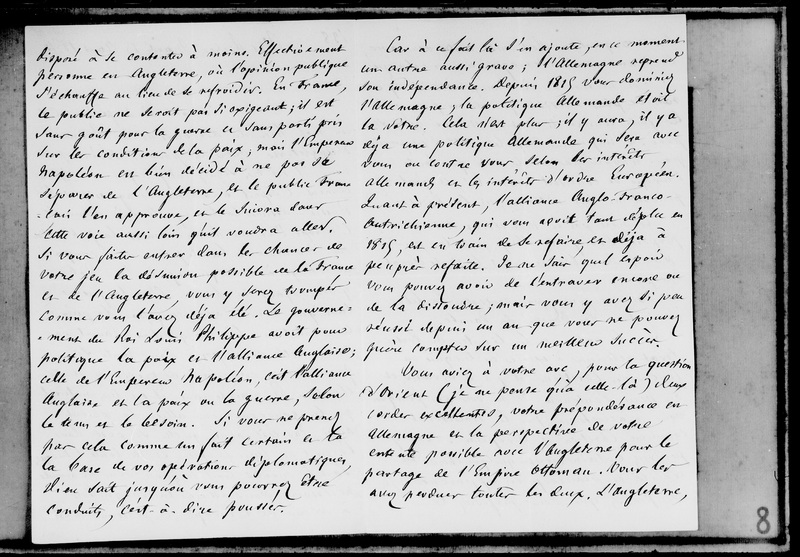 disposé à se contenter à moins. Effectivement
personne en Angleterre, où l'opinion publique
s'échauffe au lieu de se refroidir. En France,
le public ne seroit pas si exigeant; il est
sans goût pour la guerre et sans parti pris
sur les conditions de la paix; mais l'Empereur
Napoléon est bien décidé à ne pas se
séparer de l'Angleterre, et le public Fran-
-çais l'en approuve, et le suivra dans
cette voie aussi loin qu'il voudra aller.
Si vous faites entrer dans les chances de
votre jeu la désunion possible de la France
et de l'Angleterre, vous y serez trompés
comme vous l'avez déjà été. Le gouverne-
-ment du Roi Louis Philippe avoit pour
politique la paix et l'alliance Anglaise;
celle de l'Empereur Napoléon, c'est l'alliance
Anglaise et la paix ou la guerre, selon
le tems et le besoin. Si vous ne prenez
pas cela comme un fait certain et la
la base de vos opérations diplomatiques,
Dieu sait jusqu'où vous pourrez être
conduits, c'est-à-dire poussés.
Car à ce fait là s'en ajoute, en ce moment
un autre aussi grave; l'Allemagne reprend
son indépendance. Depuis 1815 vous dominiez
l'Allemagne; la politique Allemande étoit
la vôtre. Cela n'est plus; il y aura, il y a
déjà une politique Allemande qui sera avec
vous ou contre vous selon les intérêts
allemands et les intérêts d'ordre Européen.
Quant à présent, l'alliance Anglo-Franco-
Autrichienne, qui vous avoit tant déplu en
1815, est en train de se refaire et déjà à
peu près refaite. Je ne sais quel espoir
vous pouvez avoir de l'entraver encore ou
de la dissoudre; mais vous y avez si peu
réussi depuis un an que vous ne pouvez
guère compter sur un meilleur succès.
Vous aviez à votre arc, pour la question
d'Orient (je ne pense qu'à celle-là) deux
cordes excellentes, votre prépondérance en
Allemagne et la perspective de votre
entente possible avec l'Angleterre pour le
partage de l'Empire Ottoman. Vous les
avez perdues toutes les deux. L'Angleterre,
8